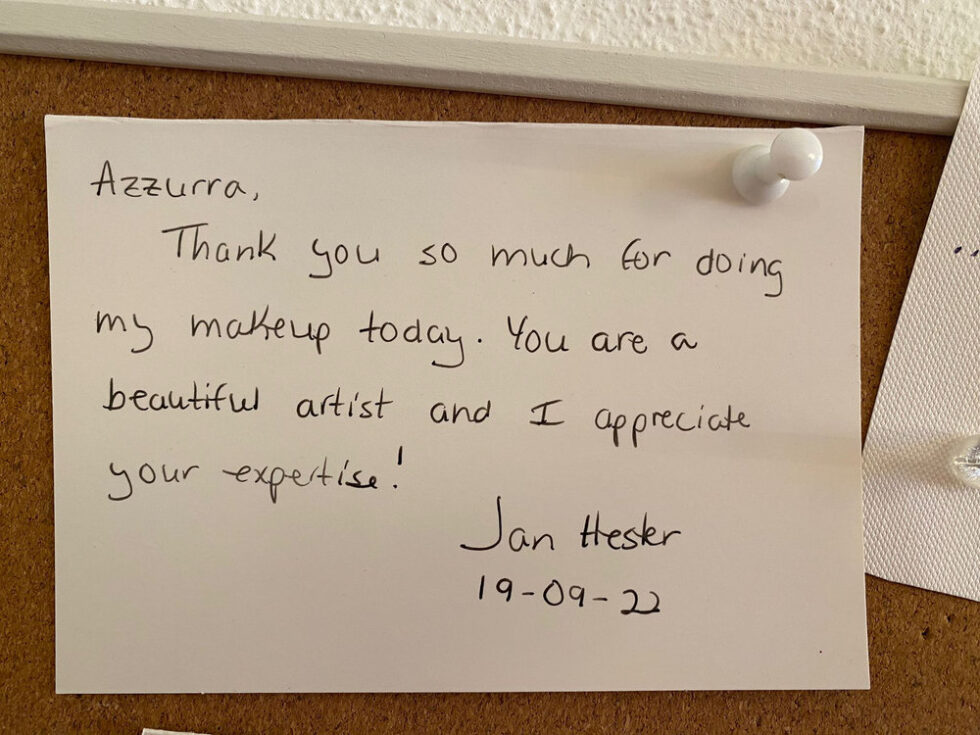 Azzurra,
Thank you so much for doing
my makeup today. You are a
beautiful artist and I appreciate
your expertise!
Jan Hester
19-09-22